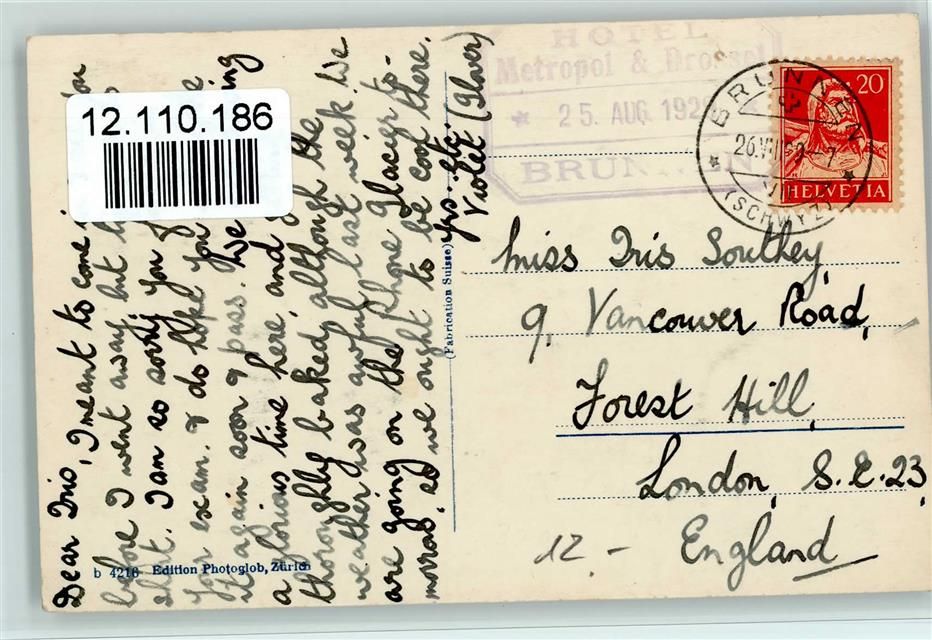 12.110.186
HOTEL
Metropol & Drossel
25. AUG 192
BRUNNEN
BRUNNEN
26.VIII.
(SCHWYZ)
20
HELVETIA
Dear Iris, I meant to come
before I went away but
short. I am so sorry you
your exam. & do hope you
it again soon & pass. We
a glorious time here, and
thoroghly baked, although the
weather was awful last week. We
are going on the Rhone Glacier to-
morrow, so we ought to be cool there.
yrs. etc.
Violet (Glover)
(Fabrication Suisse)
Miss Iris Southey,
9, Vancouver Road,
Forest Hill,
London, S.E.23,
England
12 -
b 4216 Edition Photoglob, Zürich